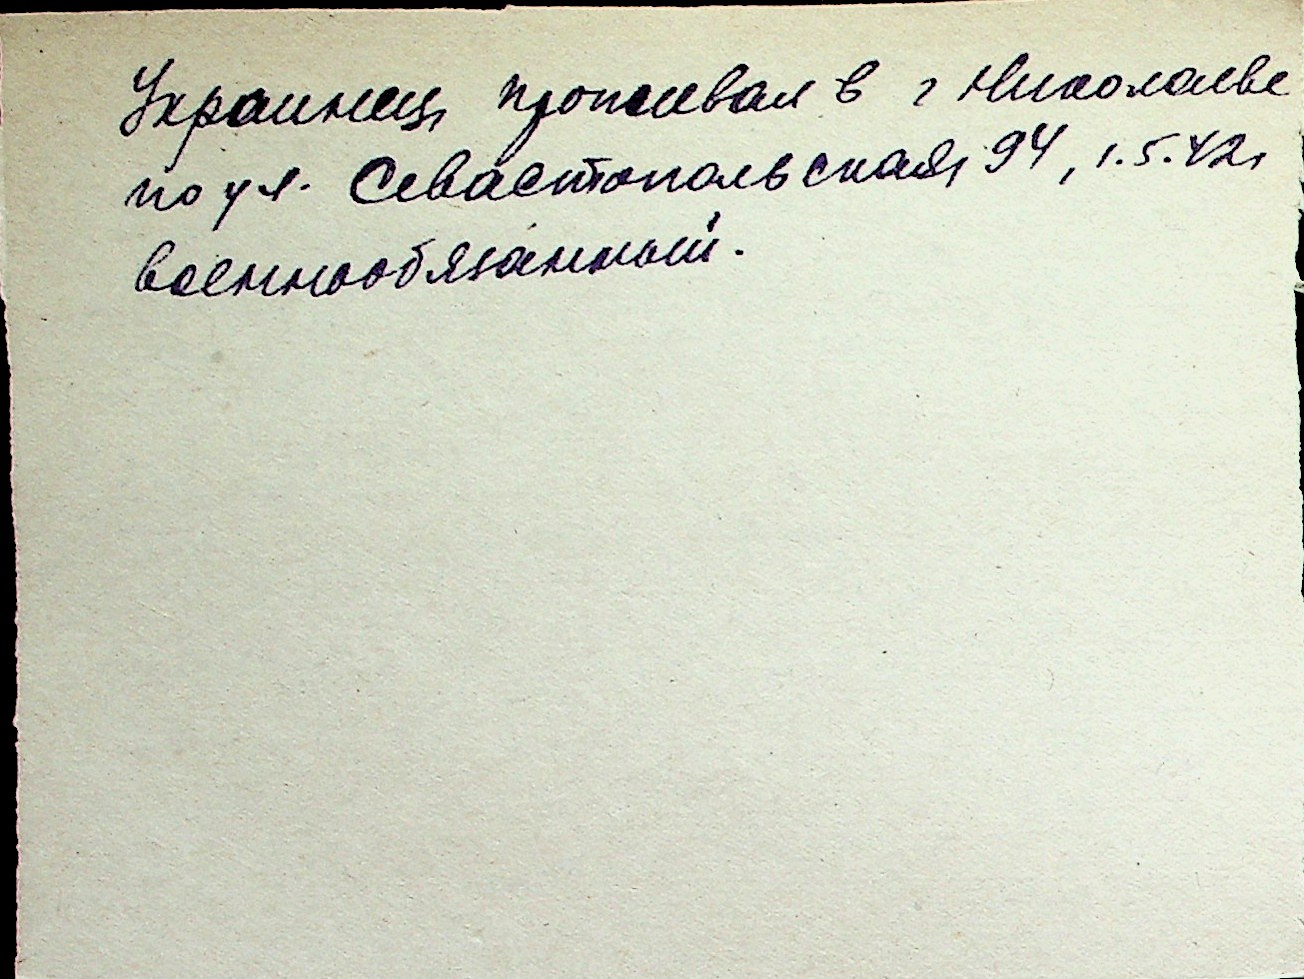 Украинец, проживал в г Николаеве
по ул. Севастопольская, 94, 1.5.42,
военнообязанный.